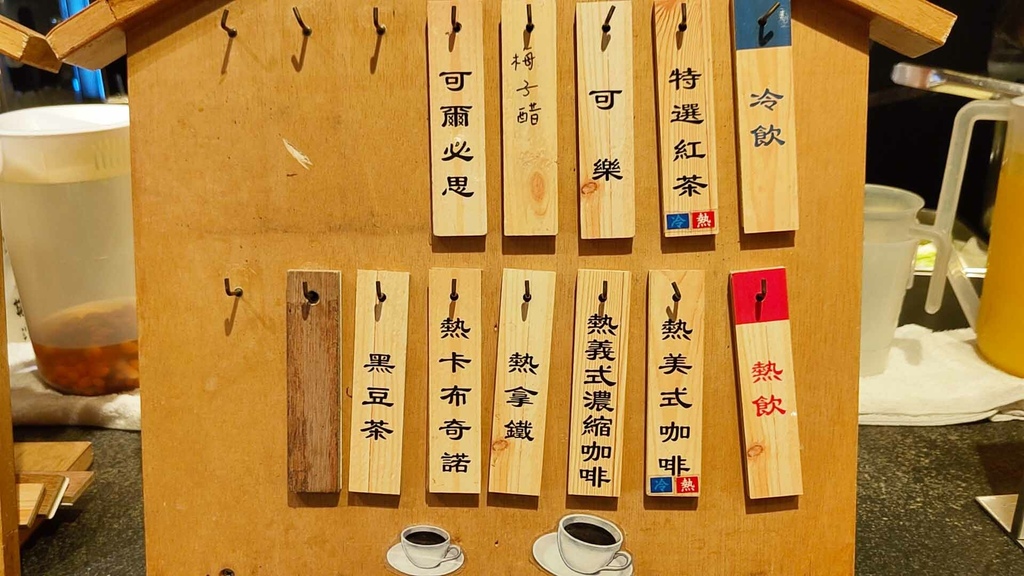 冷飲
特選紅茶
冷 熱
可樂
梅子醋
可爾必思
熱飲
熱美式咖啡
冷 熱
熱義式濃縮咖啡
熱拿鐵
熱卡布奇諾
黑豆茶